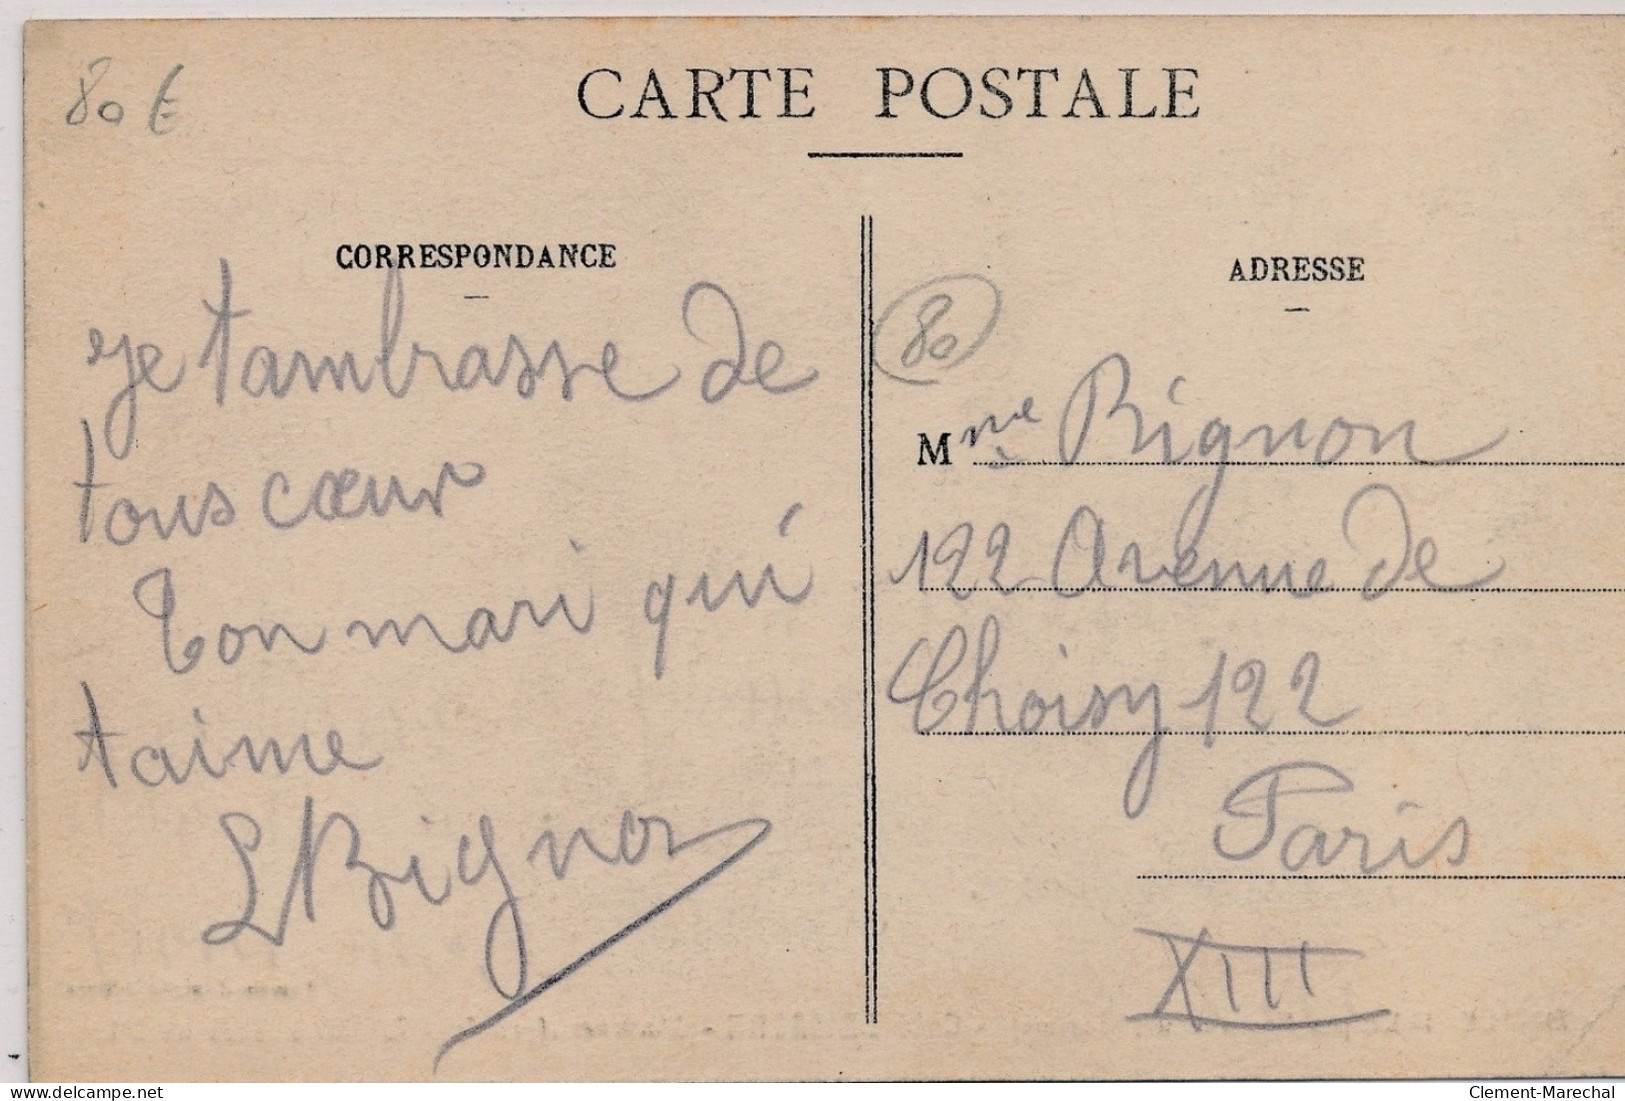 80 €
CARTE POSTALE
CORRESPONDANCE
je tambrasse de
tous cœur
Ton mari qui
taime
L Bignon
ADRESSE
80
Mme Bignon
122 Avenue de
Choisy 122
Paris
XIII
delcampe.net
Clement-Marechal